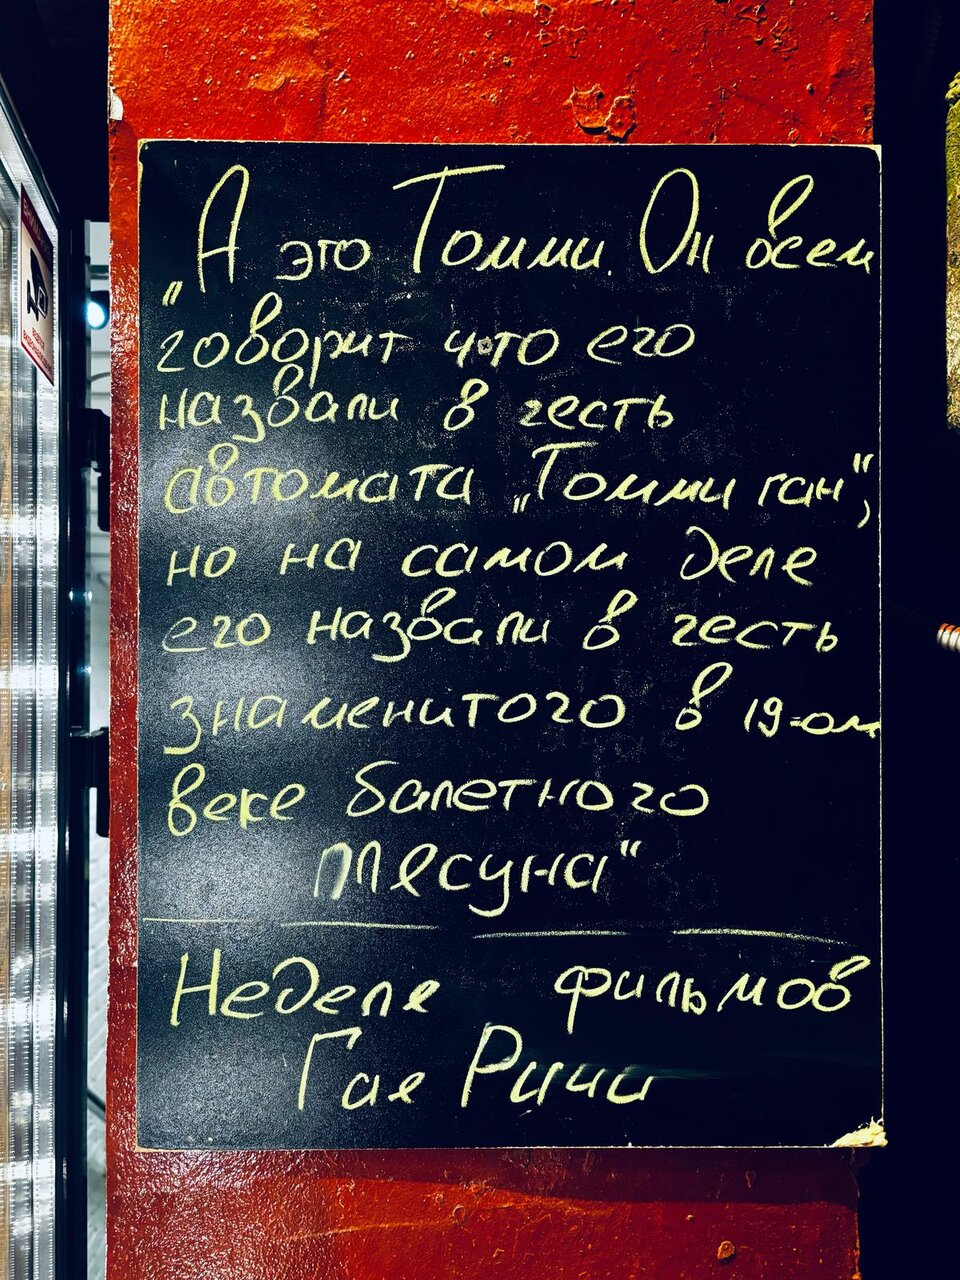 „А это Томми. Он всем
говорит что его
назвали в честь
автомата „Томми ган",
но на самом деле
его назвали в честь
знаменитого в 19-ом
веке балетного
плясуна"
Неделя фильмов
Гая Ричи